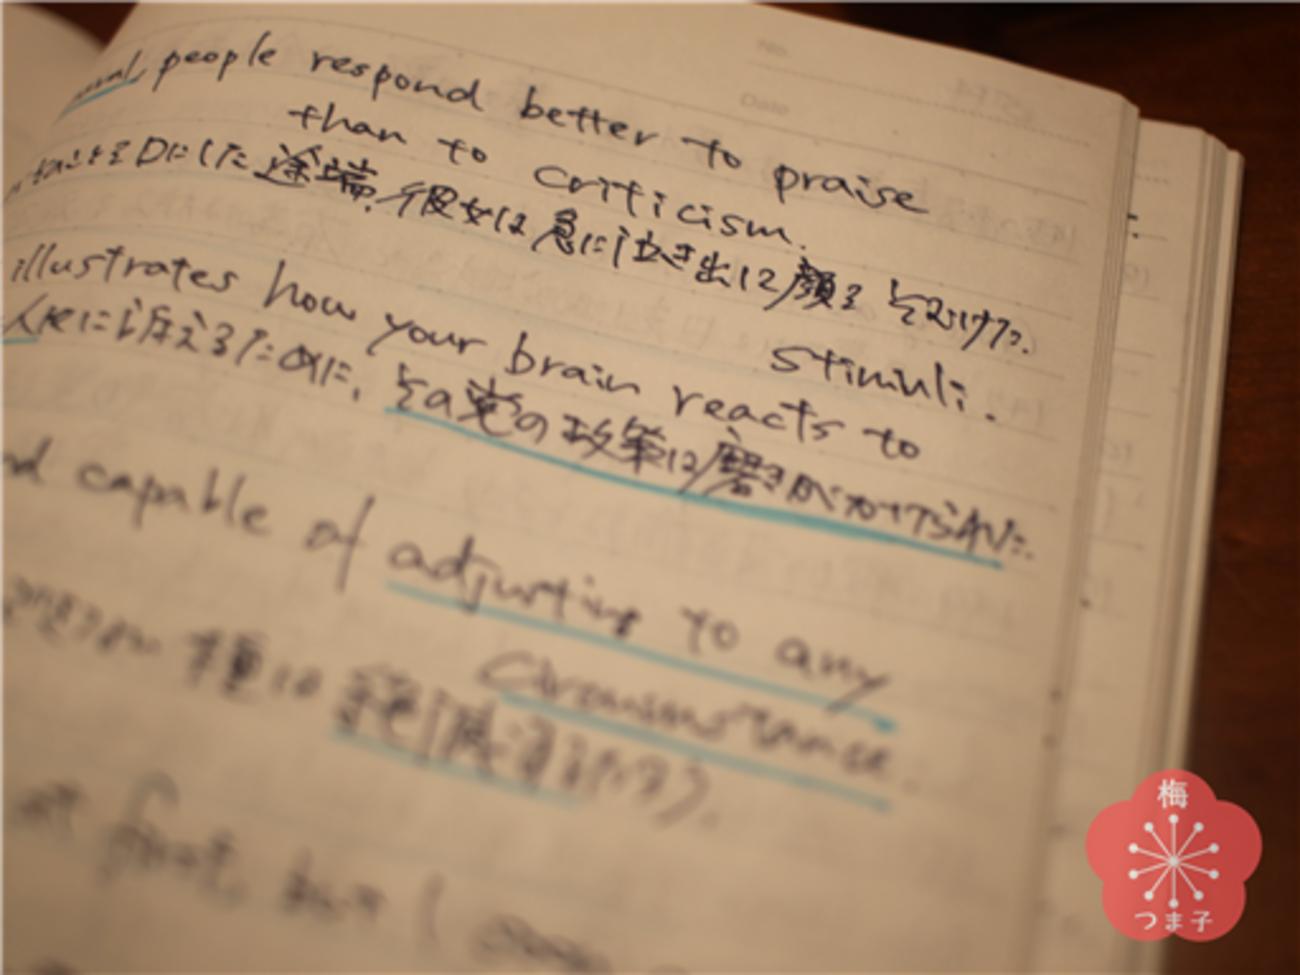 No.
Date
people respond better to praise
than to criticism.
口にした途端、彼女は急に泣き出して顔をそむけた。
illustrates how your brain reacts to
stimuli.
に訴えるために、その党の政策に磨きがかけられた。
capable of adjusting to any
circumstance.
種は絶滅
at first, but I
梅
つま子